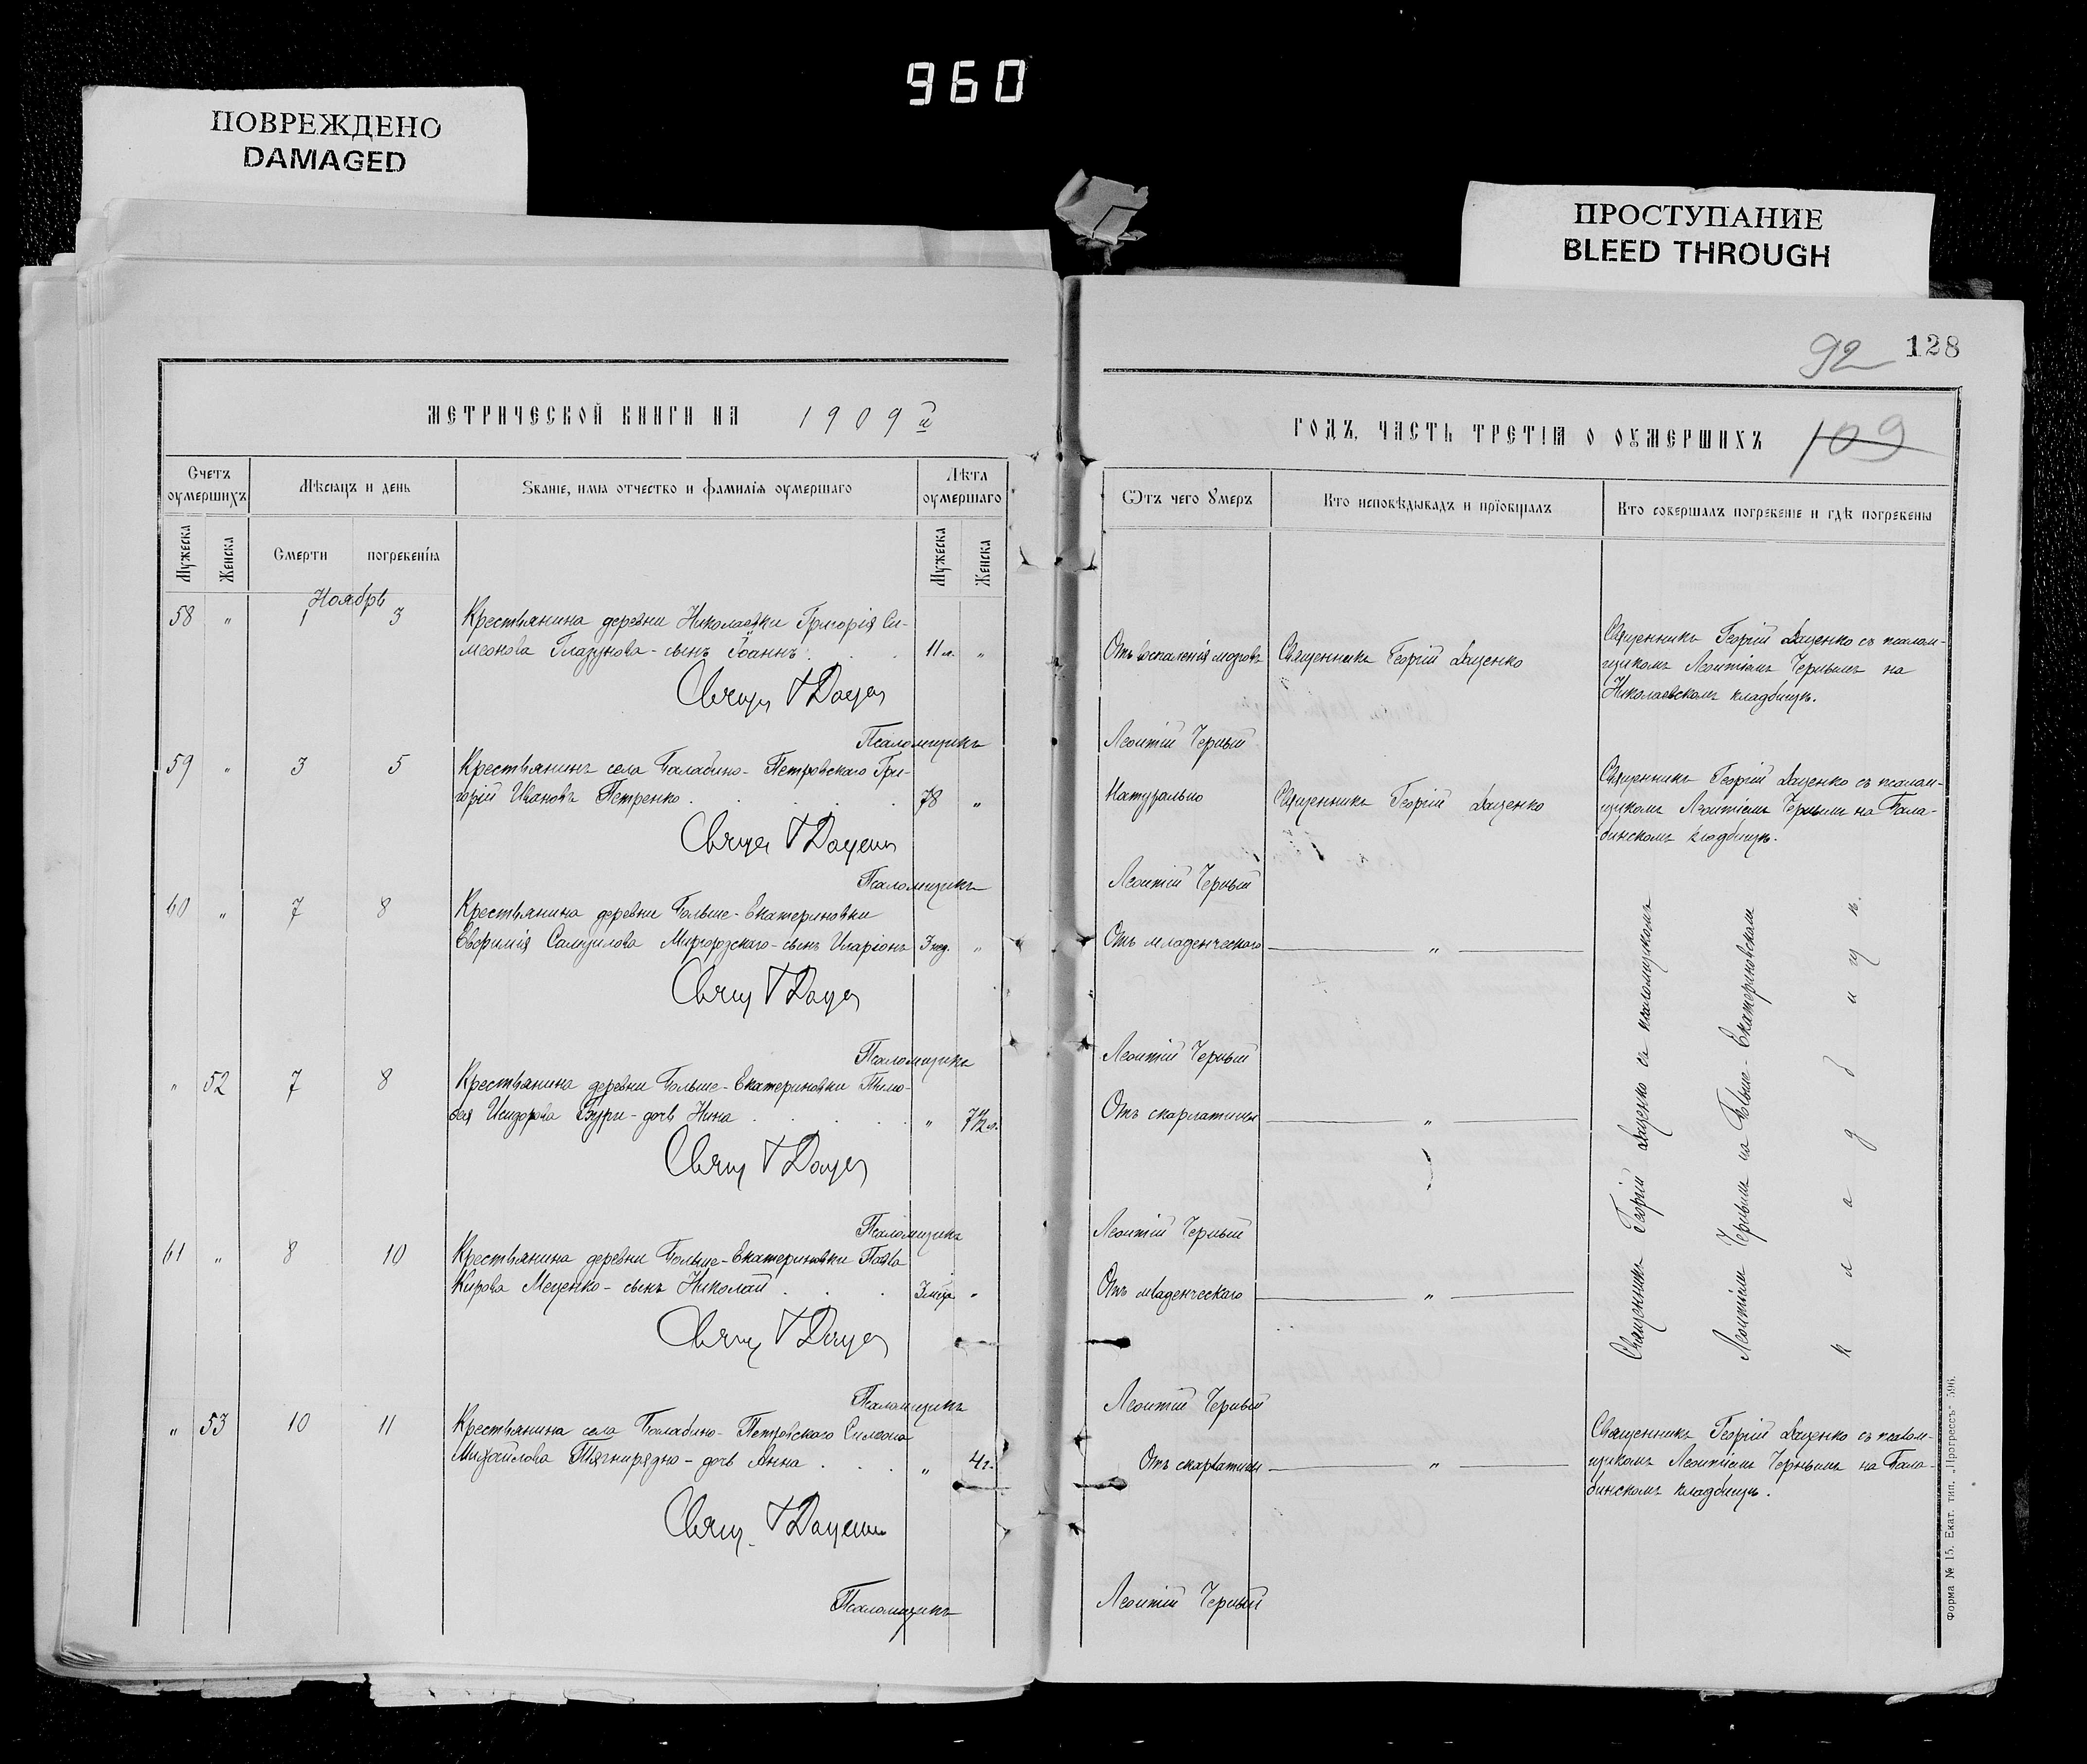 960
ПОВРЕЖДЕНО
DAMAGED
ПРОСТУПАНИЕ
BLEED THROUGH
92 128
МЕТРИЧЕСКОЙ КНИГИ НА 1909 й
Счетъ оумершихъ
Мѣсяцъ и день
Званіе, имя отчество и фамилія оумершаго
Лѣта оумершаго
Мужеска
Женска
Смерти
погребенія
Мужеска
Женска
Ноябрь
58 " 1 3 Крестьянина деревни Николаевки Григорія Си-
меонова Глазунова - сынъ Іоаннъ . . . 11 л. "
Свящ. Г Даце
Псаломщикъ
59 " 3 5 Крестьянинъ села Балабино-Петровскаго Гри-
горій Ивановъ Петренко . . . . . 78 "
Свящ. Г Даценк
Псаломщикъ
60 " 7 8 Крестьянина деревни Больше-Екатериновки
Евфимія Самуилова Миргородскаго - сынъ Иларіонъ 3 нед. "
Свящ Г Даце
Псаломщикъ
" 52 7 8 Крестьянина деревни Больше-Екатериновки Тимо-
фея Исидорова - дочь Нина . . . . " 7½ л.
Свящ Г Даце
Псаломщикъ
61 " 8 10 Крестьянина деревни Больше-Екатериновки Павла
Кирова Меценко - сынъ Николай . . . 3 мѣся. "
Свящ Г Даце
Псаломщикъ
" 53 10 11 Крестьянина села Балабино-Петровскаго Симеона
Михайлова Тягнирядно - дочь Анна . . . " 4 г.
Свящ. Г Даценк
Псаломщикъ
ГОДЪ, ЧАСТЬ ТРЕТІЯ О ОУМЕРШИХЪ 109
Отъ чего умеръ
Кто исповѣдывалъ и пріобщалъ
Кто совершалъ погребеніе и гдѣ погребены
Отъ воспаленія мозговъ Священникъ Георгій Даценко
Священникъ Георгій Даценко съ псалом-
щикомъ Леонтіемъ Чернымъ на
Николаевскомъ кладбищѣ.
Леонтій Черный
Натурально Священникъ Георгій Даценко
Священникъ Георгій Даценко съ псалом-
щикомъ Леонтіемъ Чернымъ на Бала-
бинскомъ кладбищѣ.
Леонтій Черный
Отъ младенческаго "
Леонтій Черный
Отъ скарлатины "
Леонтій Черный
Отъ младенческаго "
Священникъ Георгій Даценко съ псаломщикомъ
Леонтіемъ Чернымъ на Больше-Екатериновскомъ
кладбищѣ.
Леонтій Черный
Отъ скарлатины "
Священникъ Георгій Даценко съ псалом-
щикомъ Леонтіемъ Чернымъ на Бала-
бинскомъ кладбищѣ.
Леонтій Черный
Форма № 15. Екат. тип. „Прогрессъ" 596.